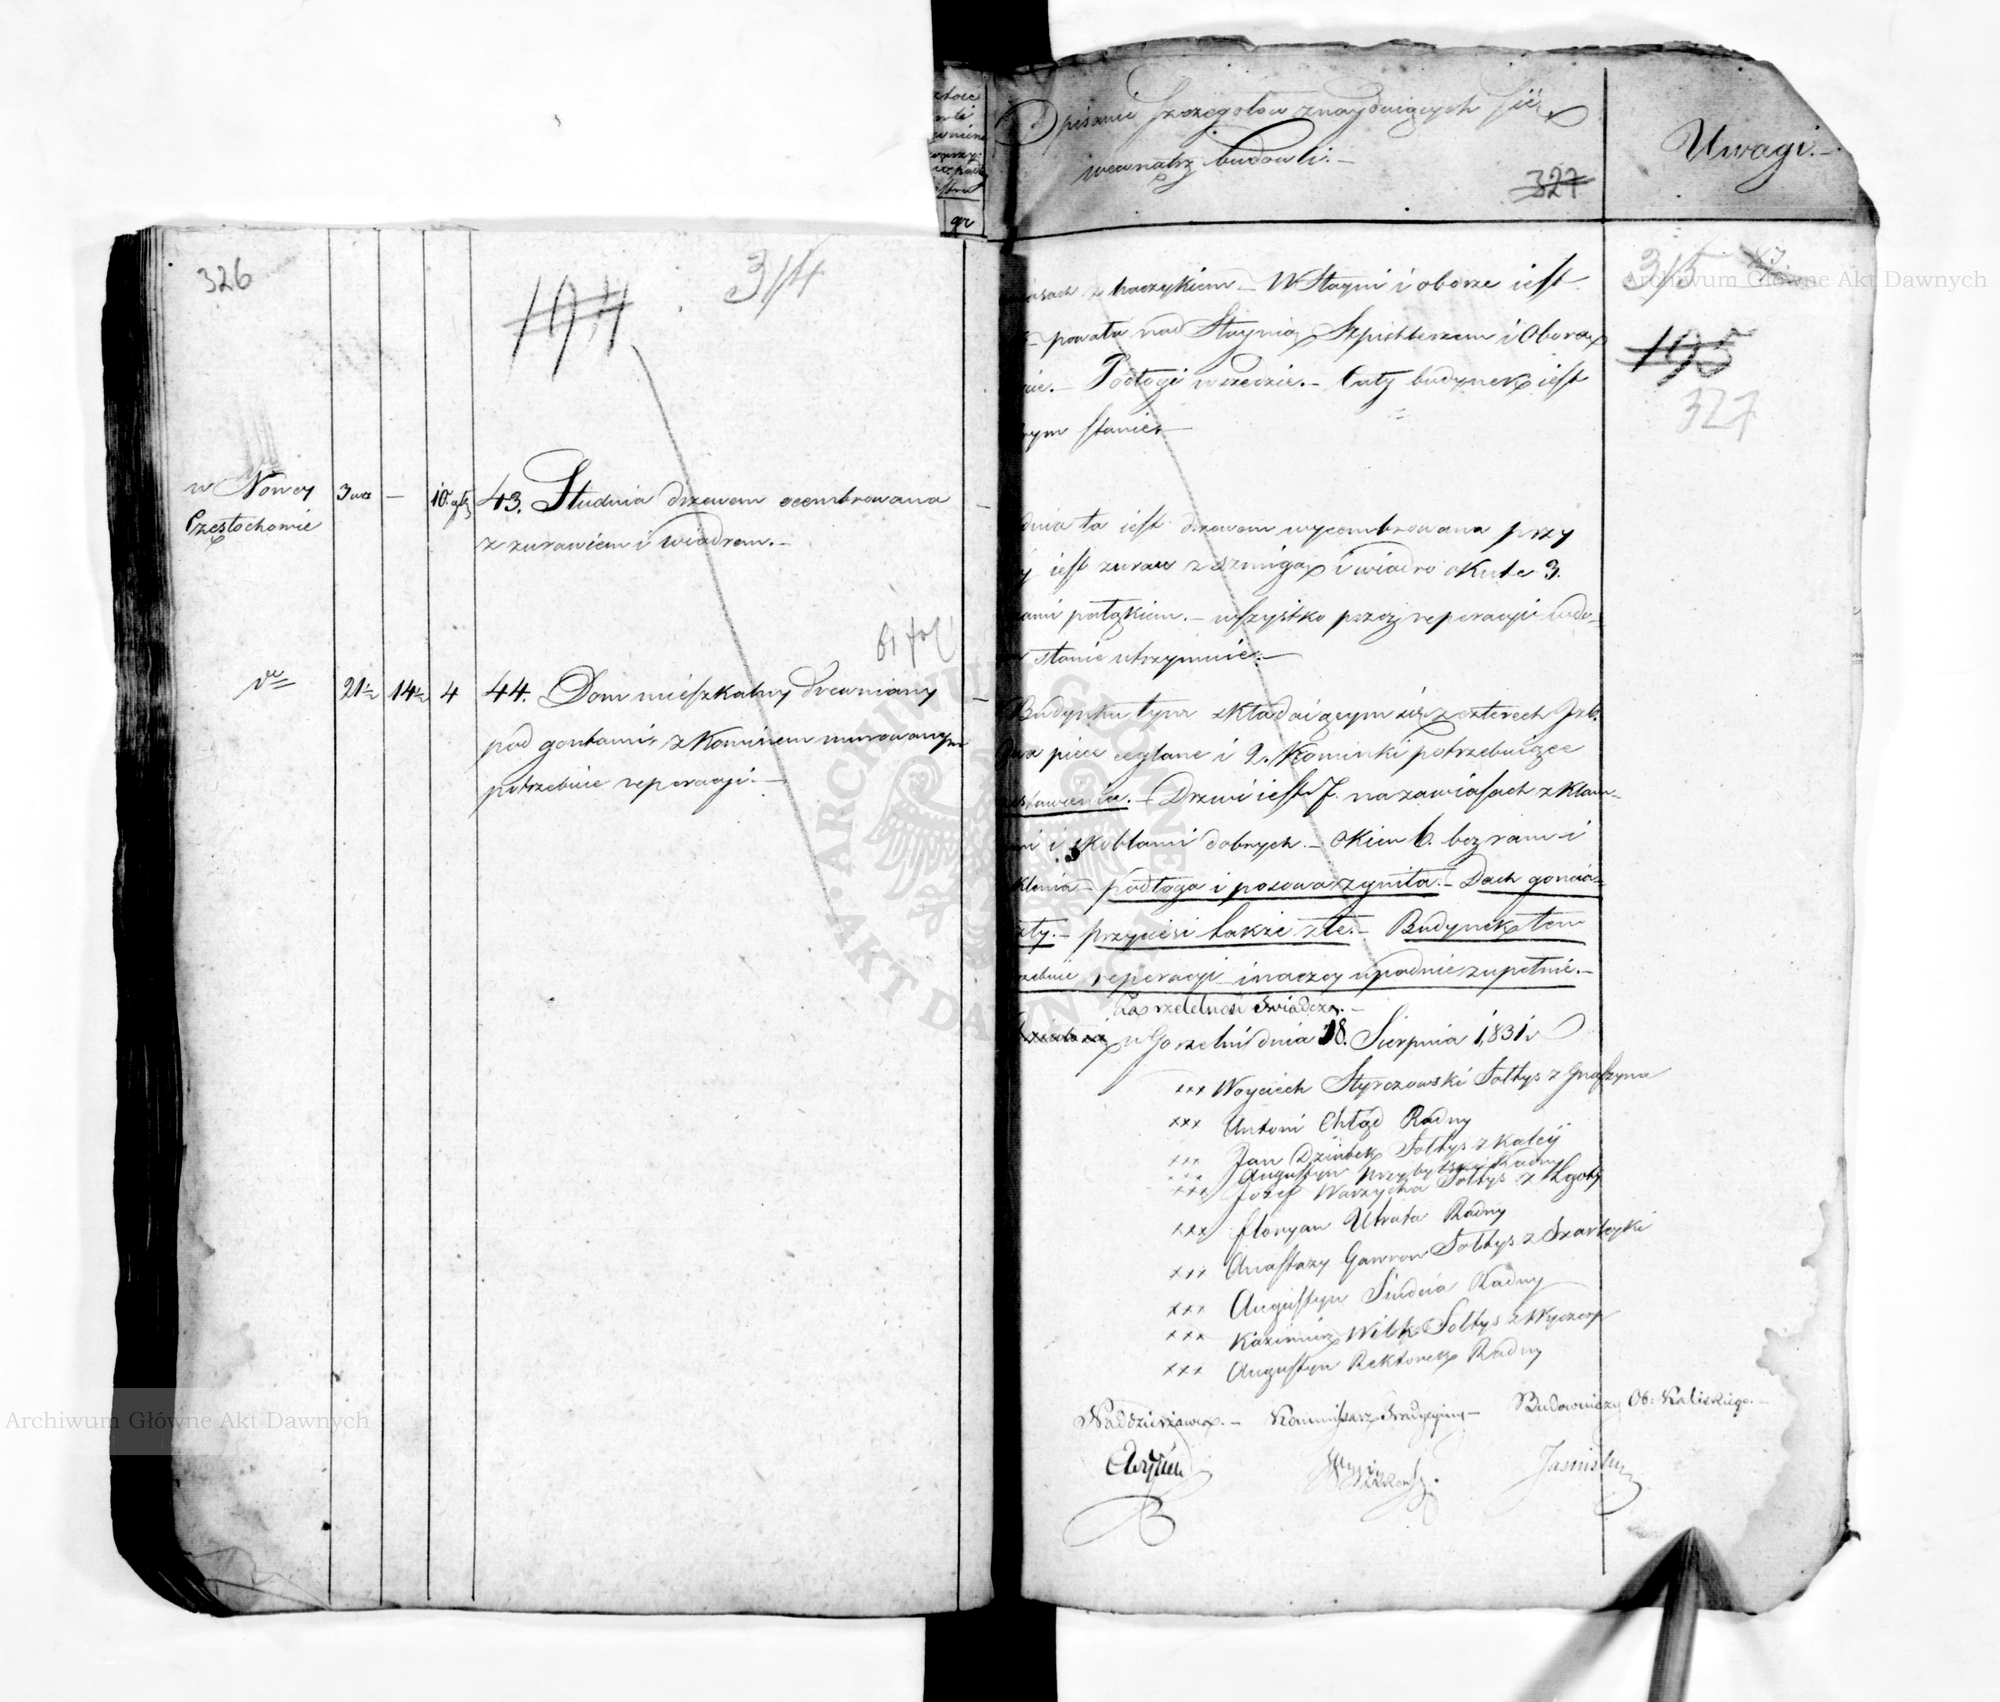 326
194
314
w Nowey
Częstochowie
3 war
—
10. głę
43. Studnia drzewem ocembrowana
z zurawiem i wiadrem.—
61 fol
dto
21½
14½
4
44. Dom mieszkalny drewniany
pod gontami, z Kominem murowanym
potrzebuie reperacyi.—
gr
Opisanie szczegołow znayduiących się
wewnątrz budowli.—
327
Uwagi.—
315
195
327
z haczykiem.— W Stayni i oborze iest
powała nad Staynią, Szpichlerzem i Oborą
Podłogi wszędzie.— Cały budynek iest
stanie.—
ta iest drzewem wycembrowana przy
iest zuraw z szmigą i wiadro okute 3.
pałąkiem.— wszystko przez reperacyie
stanie utrzymuie.—
Budynku tym składaiącym się z czterech Izb.
piece ceglane i 2. Kominki potrzebuiące
Drzwi iest 7. na zawiasach z klam-
i skoblami dobrych.— Okien 6. bez ram i
podłoga i posowa zgniła.— Dach goncia-
zły.— przyciesi także złe.— Budynek ten
reperacyi inaczey upadnie zupełnie.—
Za rzetelność świadczą.—
w Gorzelni dnia 18. Sierpnia 1831 r
xxx Woyciech Styrczowski Sołtys z Gnaszyna
xxx Antoni Chłąd Radny
xxx Jan Dziubek Sołtys z Kaley
xxx Augustyn Przybylski Radny
xxx Jozef Warzycha Sołtys z Lgoty
xxx Floryan Utrata Radny
xxx Anastazy Gawron Sołtys z Szarleyki
xxx Augustyn Radny
xxx Kazimierz Wilk Sołtys z Wyczerp
xxx Augustyn Rektorek Radny
Naddzierżawca.—
Kommissarz Tradycyiny—
Budowniczy Ob: Kaliskiego.—
Archiwum Główne Akt Dawnych
Archiwum Główne Akt Dawnych
ARCHIWUM GŁÓWNE AKT DAWNYCH